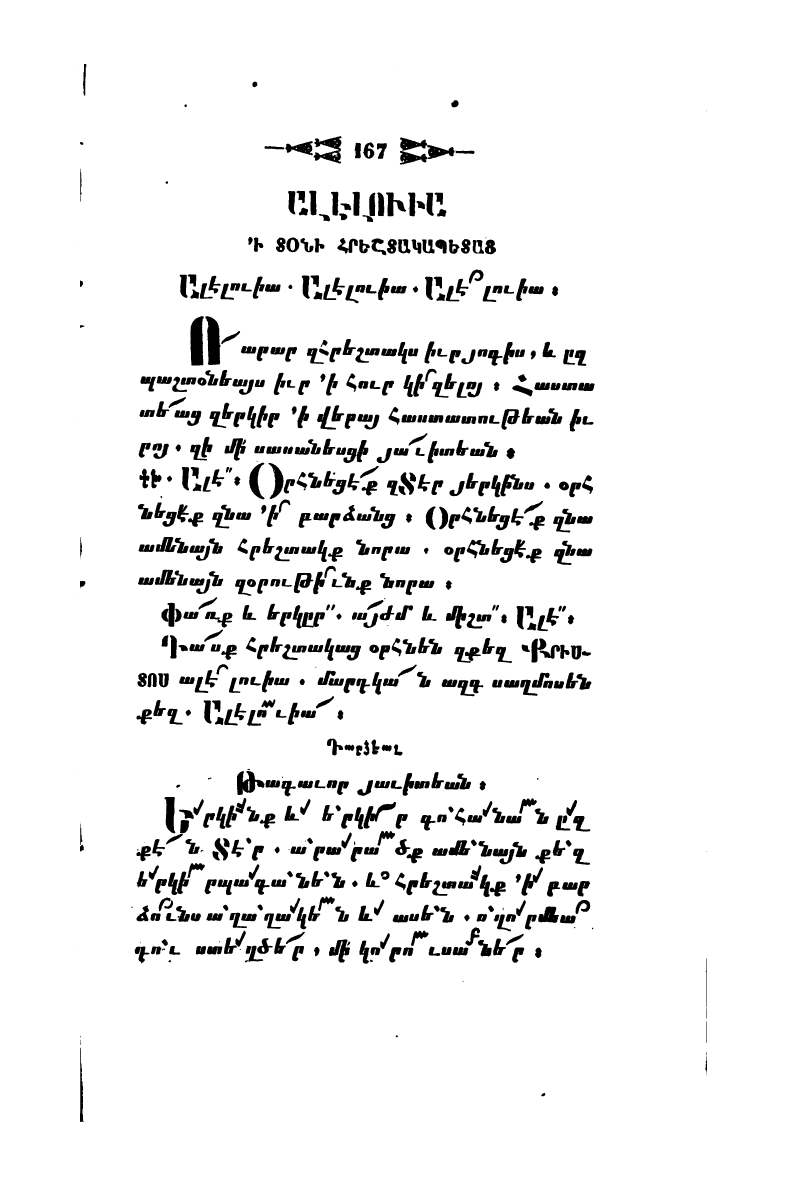 167
ԱԼԷԼՈՒԻԱ
՚Ի ՏՕՆԻ ՀՐԵՇՏԱԿԱՊԵՏԱՑ
Ալէլուիա․ Ալէլուիա․ Ալէ՜լուիա։
Ո՜արար զՀրեշտակս իւր յոգիս, և ըզ
պաշտօնեայս իւր ՚ի հուր կի՜զելոյ։ Հաստա
տե՜աց զերկիր ՚ի վերայ Հաստատութեան իւ
րոյ․ զի մի սասանեսցի յա՜ւիտեան։
ԳԻ․ Ալէ՞։ Օրհնեցէ՜ք զՏէր յերկինս․ օրհ
նեցէք զնա ՚ի՜ բարձանց։ Օրհնեցէ՜ք զնա
ամենայն Հրեշտակք նորա․ օրհնեցէք զնա
ամենայն զօրութի՜ւնք նորա։
Փա՜ռք և երկըր՞․ ա՜յժմ և միշտ՞։ Ալէ՞։
Դա՜սք Հրեշտակաց օրհնեն զքեզ ՔՐԻՍ-
ՏՈՍ ալէ՜լուիա․ մարդկա՜ն ազգ սաղմոսեն
քեզ․ Ալէլո՜ւիա՜։
Դարձեալ
Թագաւոր յաւիտեան։
Երկի՛նք և՛ ե՛րկի՜ր գո՛հա՛նա՜ն ը՛զ
քէ՜ն Տէ՛ր․ ա՛րա՛րա՜ծք ամե՛նայն քե՛զ
ե՛րկի՜րպա՛գա՛նե՛ն․ և՛ Հրեշտա՛կք ՚ի՛ բար
ձո՜ւնս ա՛ղա՛ղա՛կե՜ն և՛ ասե՛ն․ ո՛ղո՛րմեա՜
գո՛ւ ստե՛ղծե՜ր, մի կո՛րո՜ւսա՛նե՜ր։